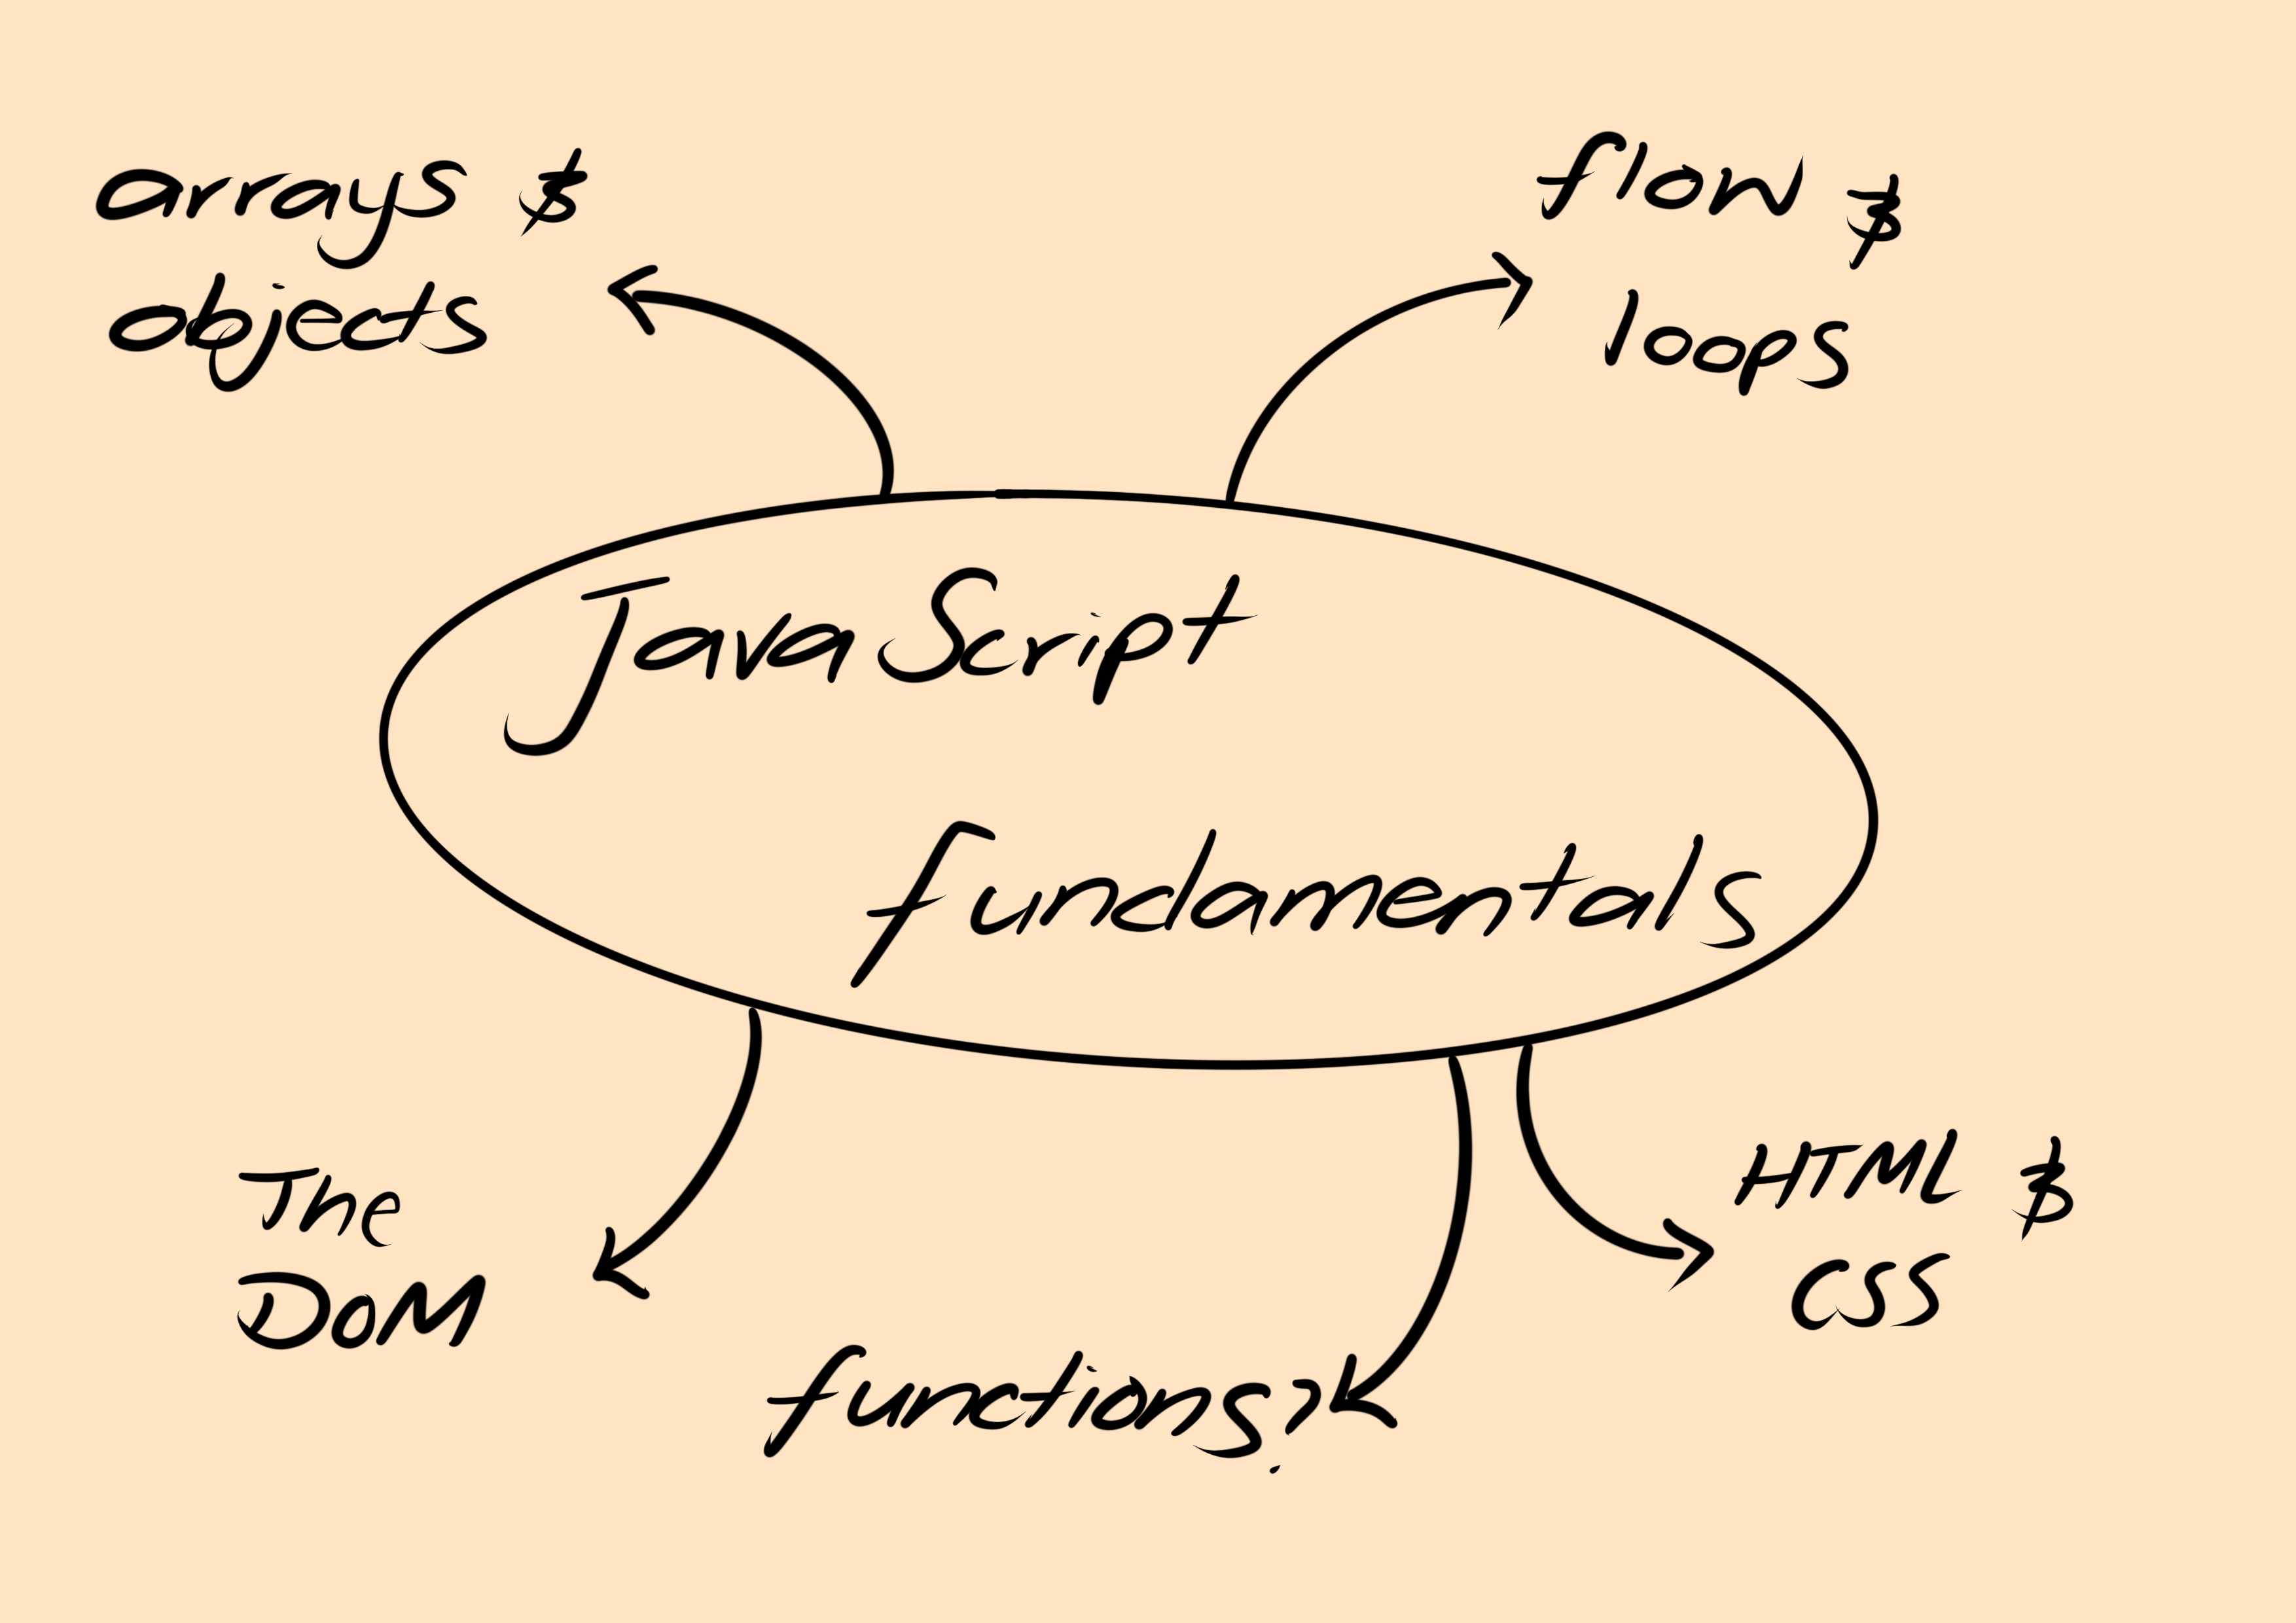 arrays $
objects
flow $
loops
JavaScript
fundamentals
The
DOM
functions?
HTML $
CSS